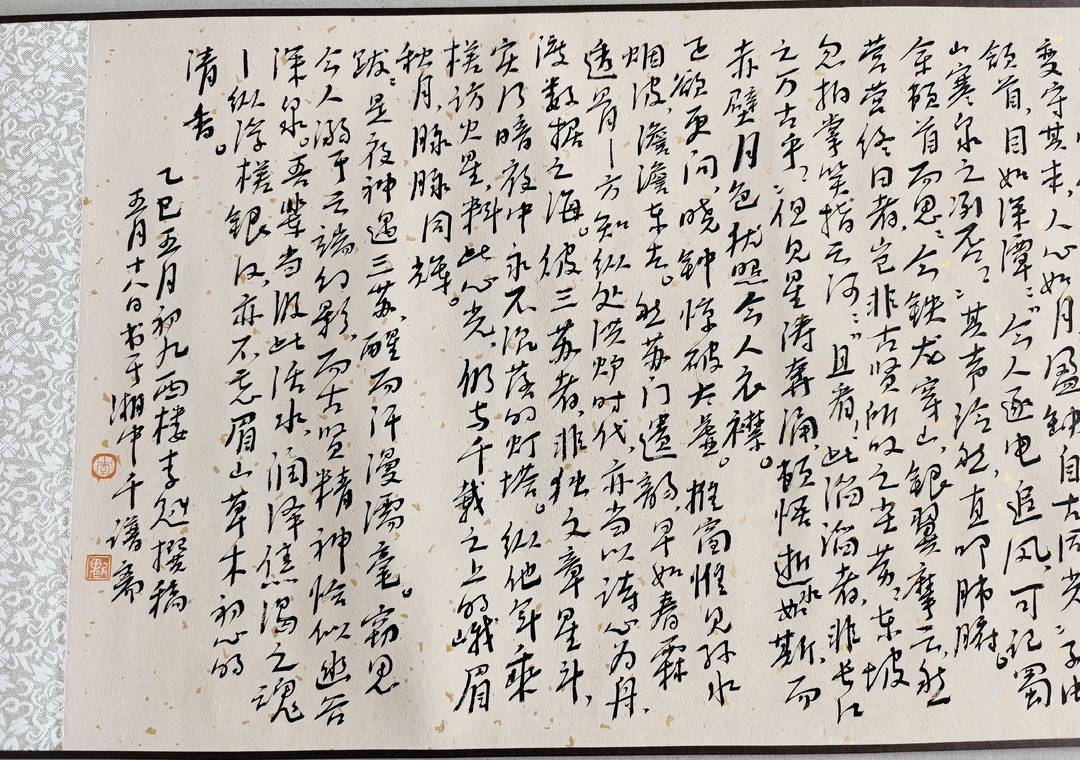 变守其本，人心如月盈缺自古流光。子由
颔首，目如深潭：“今人逐电追风，可记蜀
山寒泉之冽否？”其声泠然，直叩肺腑。
余顿首而思：今铁龙穿山，银翼摩云，然
营营终日者，岂非古贤所叹之尘劳？东坡
忽拍掌笑指云河：“且看，此滔滔者，非长江
之万古乎？”但见星涛奔涌，顿悟逝水如斯，而
赤壁月色犹照今人衣襟。
正欲更问，晓钟惊破大梦。推窗惟见环水
烟波，澹澹东去。然苏门遗韵，早如春霖
透骨——方知纵处深炉时代，亦当以诗心为舟，
渡数据之海。彼三苏者，非独文章星斗，
实乃暗夜中永不沉落的灯塔。纵他年乘
槎访火星，料此心光，仍与千载之上的峨眉
秋月，脉脉同辉。
跋：是夜神遇三苏，醒而汗漫濡毫。窃思
今人溺于云端幻影，而古贤精神恰似幽谷
深泉。吾辈当汲此活水，润泽焦渴之魂
——纵浮槎银汉，亦不忘眉山草木初心的
清香。
乙巳五月初九西楼李魁撰稿
五月十八日书于湘中千谱斋